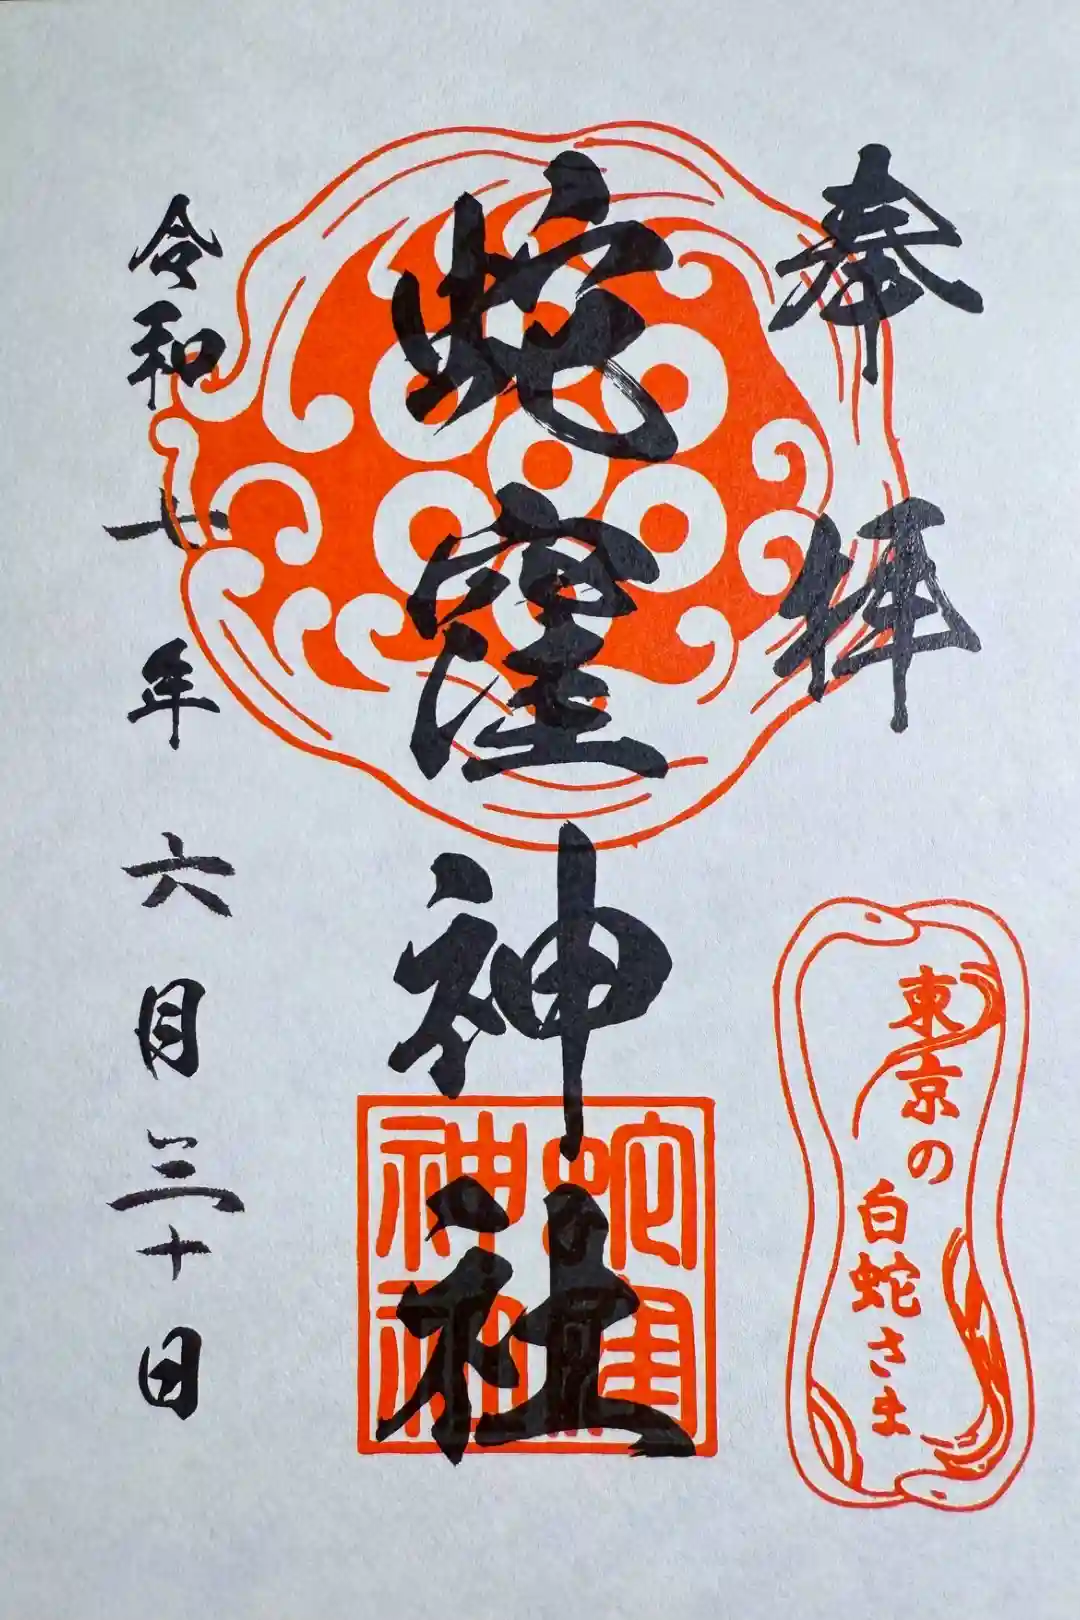 奉拝
東京の
白蛇さま
蛇窪神社
蛇窪
神社
令和七年六月三十日